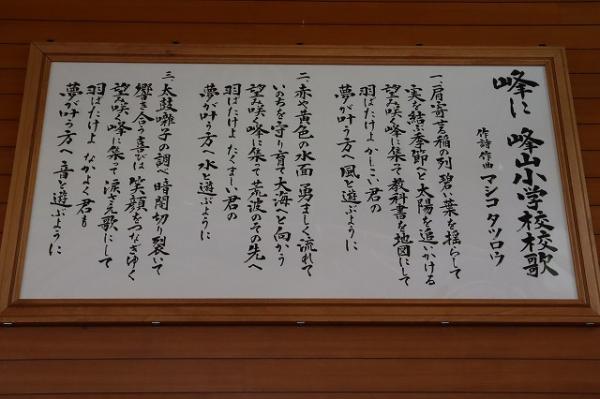 峰に 峰山小学校校歌
作詩作曲 マシコタツロウ
一、肩寄言稲の列 碧い葉を揺らして
実を結ぶ季節へと 太陽を追いかける
望み咲く峰に集て 教科書を地図にして
羽ばたけよ かしこい君の
夢が叶う方へ 風と遊ぶように
二、赤や黄色の水面 勇ましく流れて
いのちを守り育て 大海へと向かう
望み咲く峰に集て 荒波のその先へ
羽ばたけよ たくましい君の
夢が叶う方へ 水と遊ぶように
三、太鼓囃子の調べ 暗闇切り裂いて
響き合う喜びは 笑顔をつなぎゆく
望み咲く峰に集て 涙さえ歌にして
羽ばたけよ なかよく君も
夢が叶う方へ 音と遊ぶように